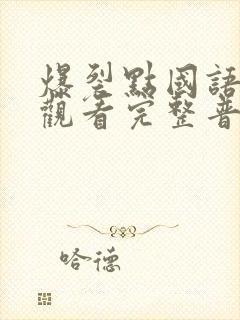 爆裂點國語
觀看完整普
哈德